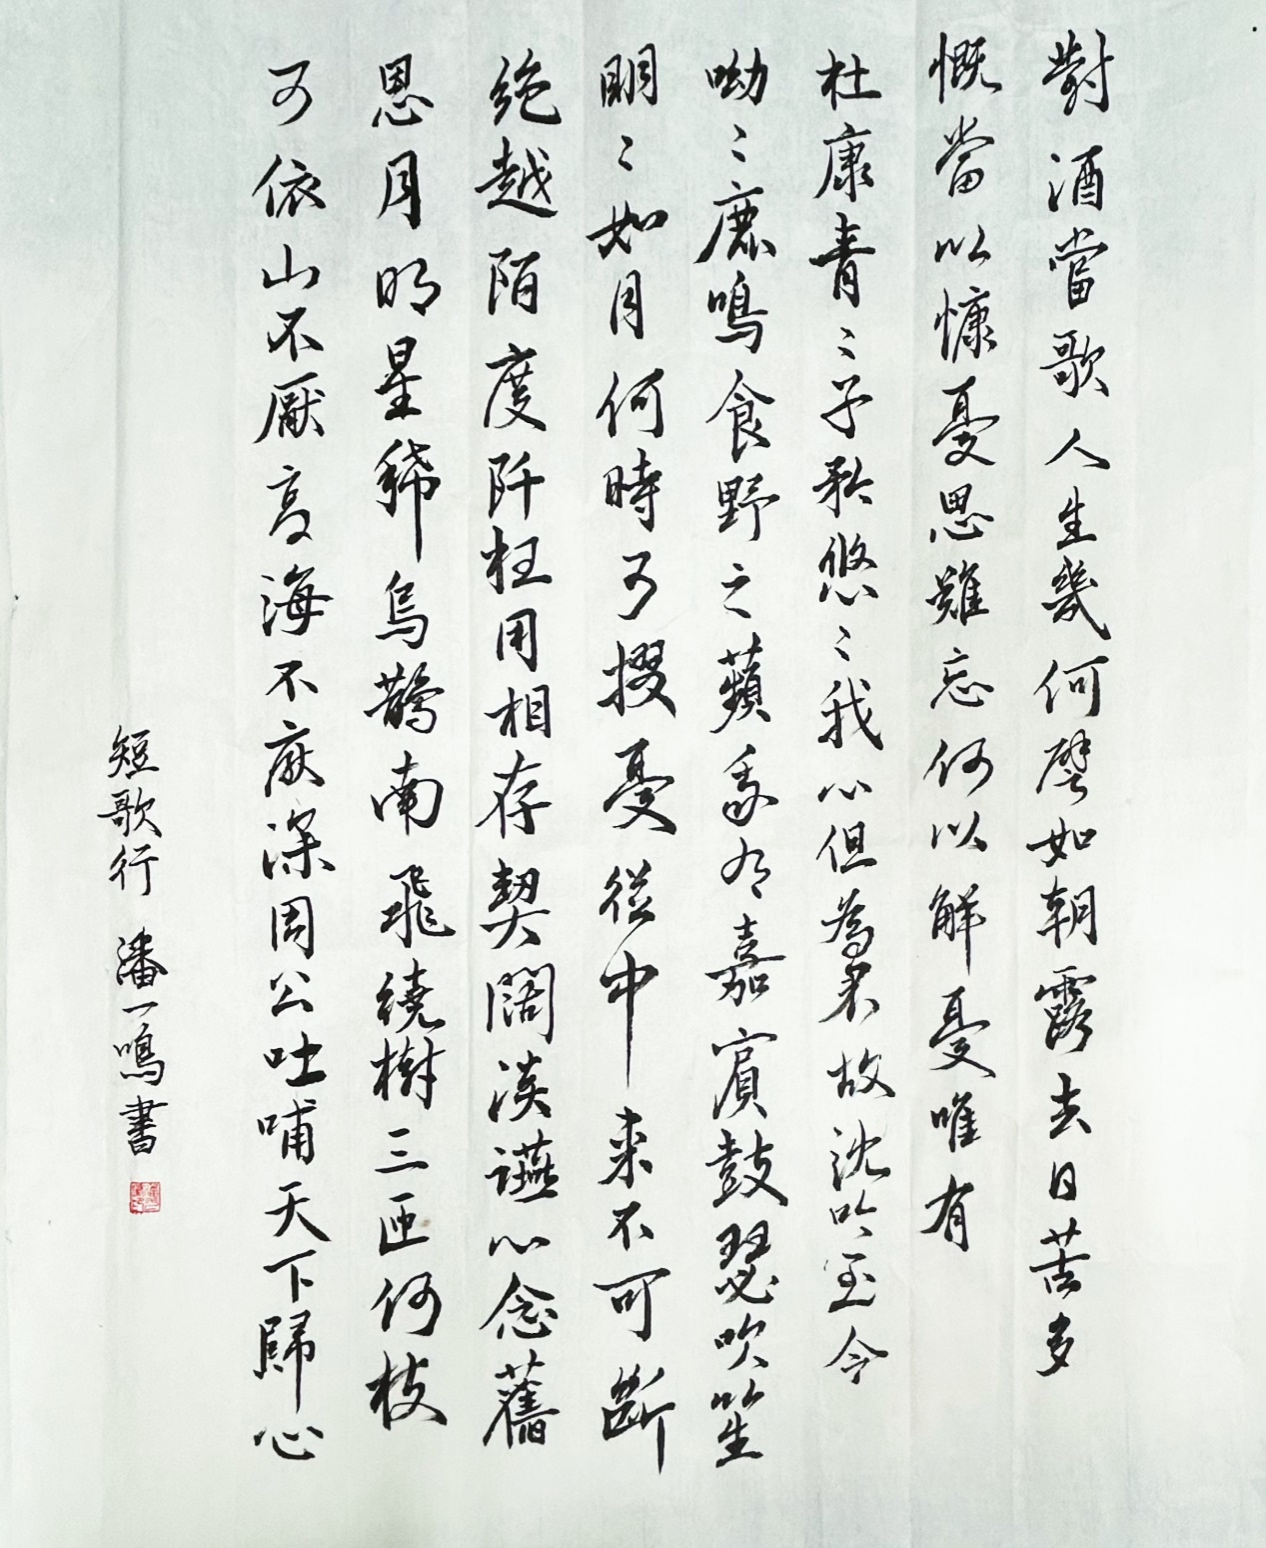 對酒當歌人生幾何譬如朝露去日苦多
慨當以慷憂思難忘何以解憂唯有
杜康青〻子衿悠〻我心但為君故沈吟至今
呦〻鹿鳴食野之蘋我有嘉賓鼓瑟吹笙
明〻如月何時可掇憂從中來不可斷
絶越陌度阡枉用相存契闊談讌心念舊
恩月明星稀烏鵲南飛繞樹三匝何枝
可依山不厭高海不厭深周公吐哺天下歸心
短歌行 潘一鳴書